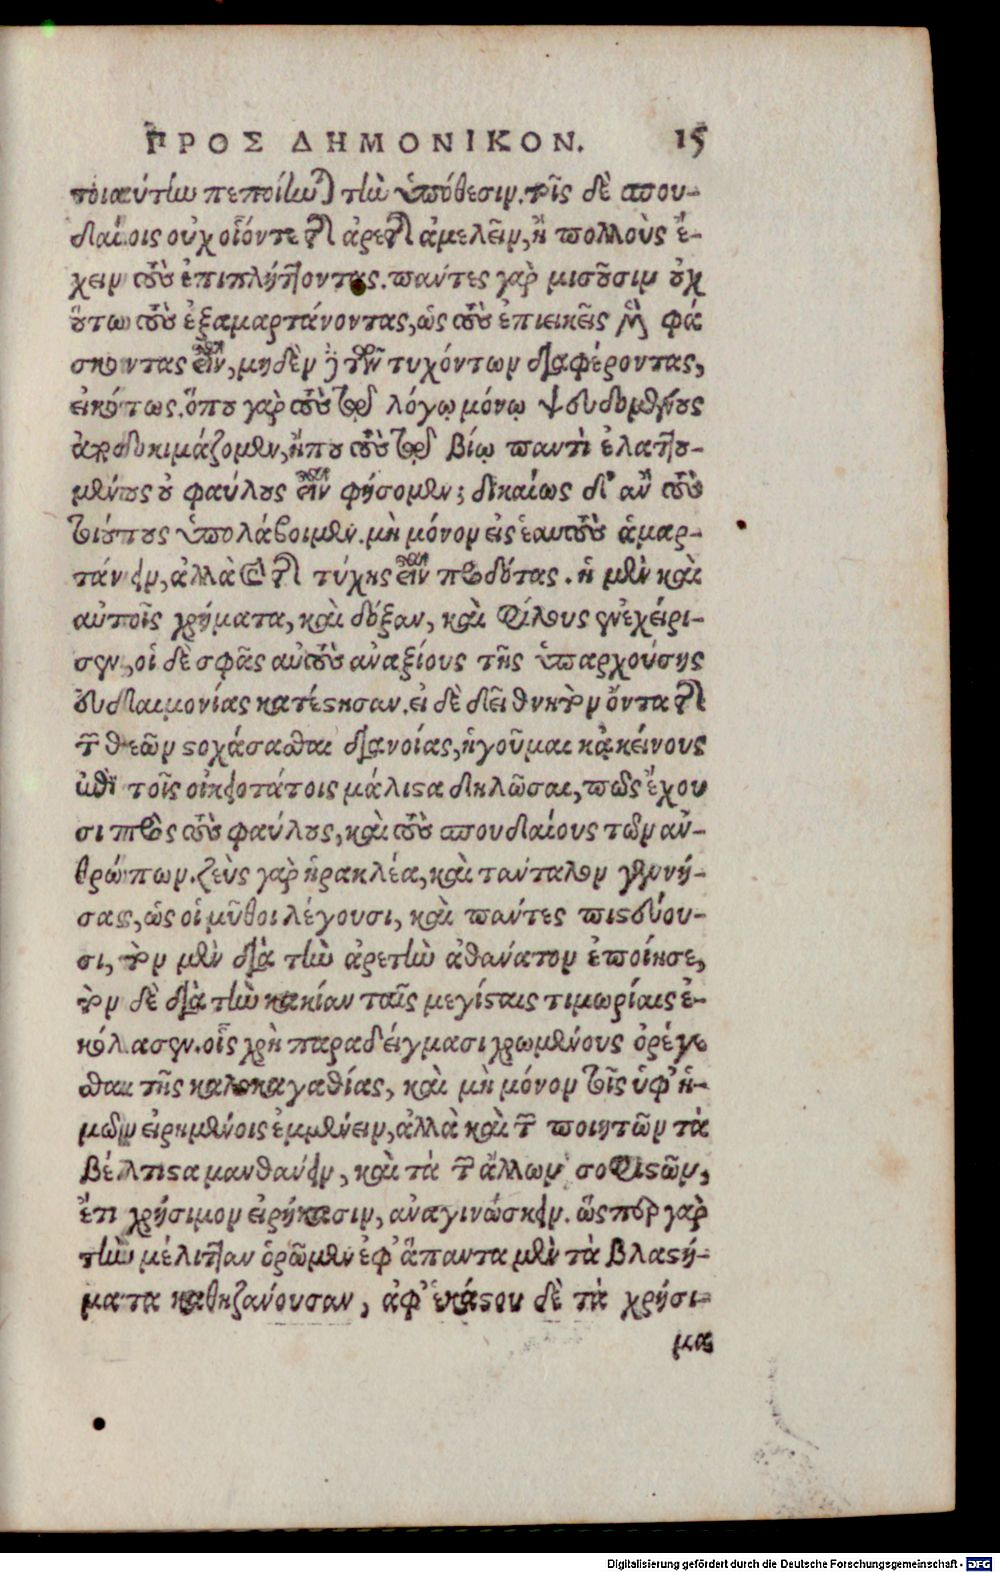 ΠΡΟΣ ΔΗΜΟΝΙΚΟΝ. 15
τοιαύτην πεποίηνται τὴν ὑπόθεσιν. τοῖς δὲ σπου-
δαίοις οὐχ οἷόντε τῆς ἀρετῆς ἀμελεῖν, ἢ πολλοὺς ἔ-
χειν τοὺς ἐπιπλήττοντας. πάντες γὰρ μισοῦσιν οὐχ
οὕτω τοὺς ἐξαμαρτάνοντας, ὡς τοὺς ἐπιεικεῖς μὲν φά
σκοντας εἶναι, μηδὲν δὲ τῶν τυχόντων διαφέροντας,
εἰκότως. ὅπου γὰρ τοὺς τῷ λόγῳ μόνῳ ψευδομένους
ἀποδοκιμάζομεν, ἤπου τοὺς τῷ βίῳ παντὶ ἐλαττου-
μένους οὐ φαύλους εἶναι φήσομεν; δικαίως δ' ἂν τοὺς
τοιούτους ὑπολάβοιμεν. μὴ μόνον εἰς ἑαυτοὺς ἁμαρ-
τάνειν, ἀλλὰ καὶ τῆς τύχης εἶναι προδότας. ἡ μὲν καὶ
αὐτοῖς χρήματα, καὶ δόξαν, καὶ φίλους ἐνεχείρι-
σεν, οἱ δὲ σφᾶς αὐτοὺς ἀναξίους τῆς ὑπαρχούσης
εὐδαιμονίας κατέστησαν. εἰ δὲ δεῖ θνητὸν ὄντα τῆς
τῶν θεῶν στοχάσασθαι διανοίας, ἡγοῦμαι κἀκείνους
ἐπὶ τοῖς οἰκειοτάτοις μάλιστα δηλῶσαι, πῶς ἔχου
σι πρὸς τοὺς φαύλους, καὶ τοὺς σπουδαίους τῶν ἀν-
θρώπων. ζεὺς γὰρ ἡρακλέα, καὶ τάνταλον γεννή-
σας, ὡς οἱ μῦθοι λέγουσι, καὶ πάντες πιστεύου-
σι, τὸν μὲν διὰ τὴν ἀρετὴν ἀθάνατον ἐποίησε,
τὸν δὲ διὰ τὴν κακίαν ταῖς μεγίσταις τιμωρίαις ἐ-
κόλασεν. οἷς χρὴ παραδείγμασι χρωμένους ὀρέγε
σθαι τῆς καλοκαγαθίας, καὶ μὴ μόνον τοῖς ὑφ' ἡ-
μῶν εἰρημένοις ἐμμένειν, ἀλλὰ καὶ τῶν ποιητῶν τὰ
βέλτιστα μανθάνειν, καὶ τὰ τῶν ἄλλων σοφιστῶν,
ἔτι χρήσιμον εἰρήκασιν, ἀναγινώσκειν. ὥσπερ γὰρ
τὴν μέλιτταν ὁρῶμεν ἐφ' ἅπαντα μὲν τὰ βλαστή-
ματα καθηζάνουσαν, ἀφ' ἑκάστου δὲ τὰ χρήσι-
μα
Digitalisierung gefördert durch die Deutsche Forschungsgemeinschaft - DFG